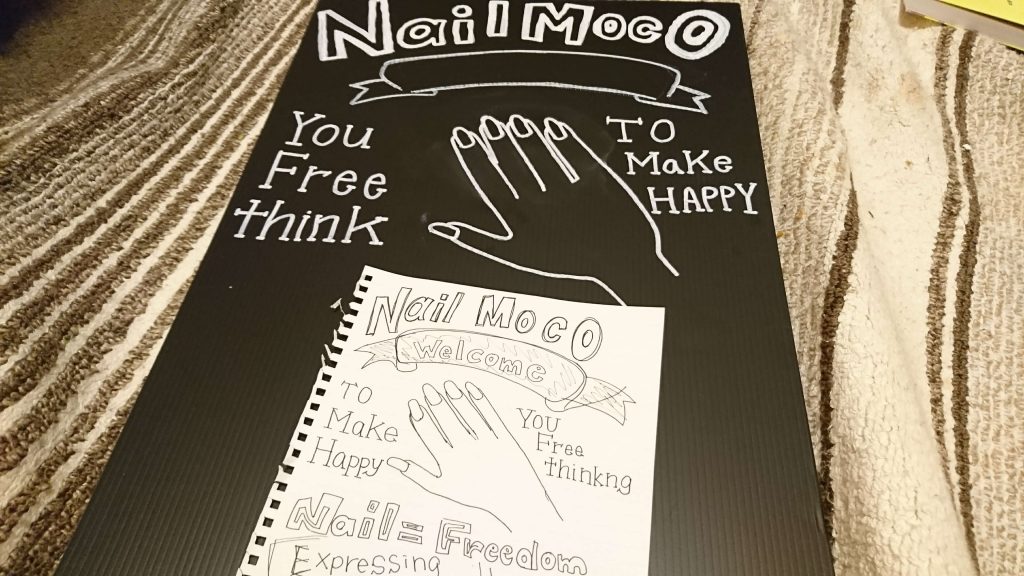 Nail Moco
You
Free
think
TO
Make
HAPPY
Nail Moco
Welcome
TO
Make
Happy
You
Free
thinkng
Nail = Freedom
Expressing